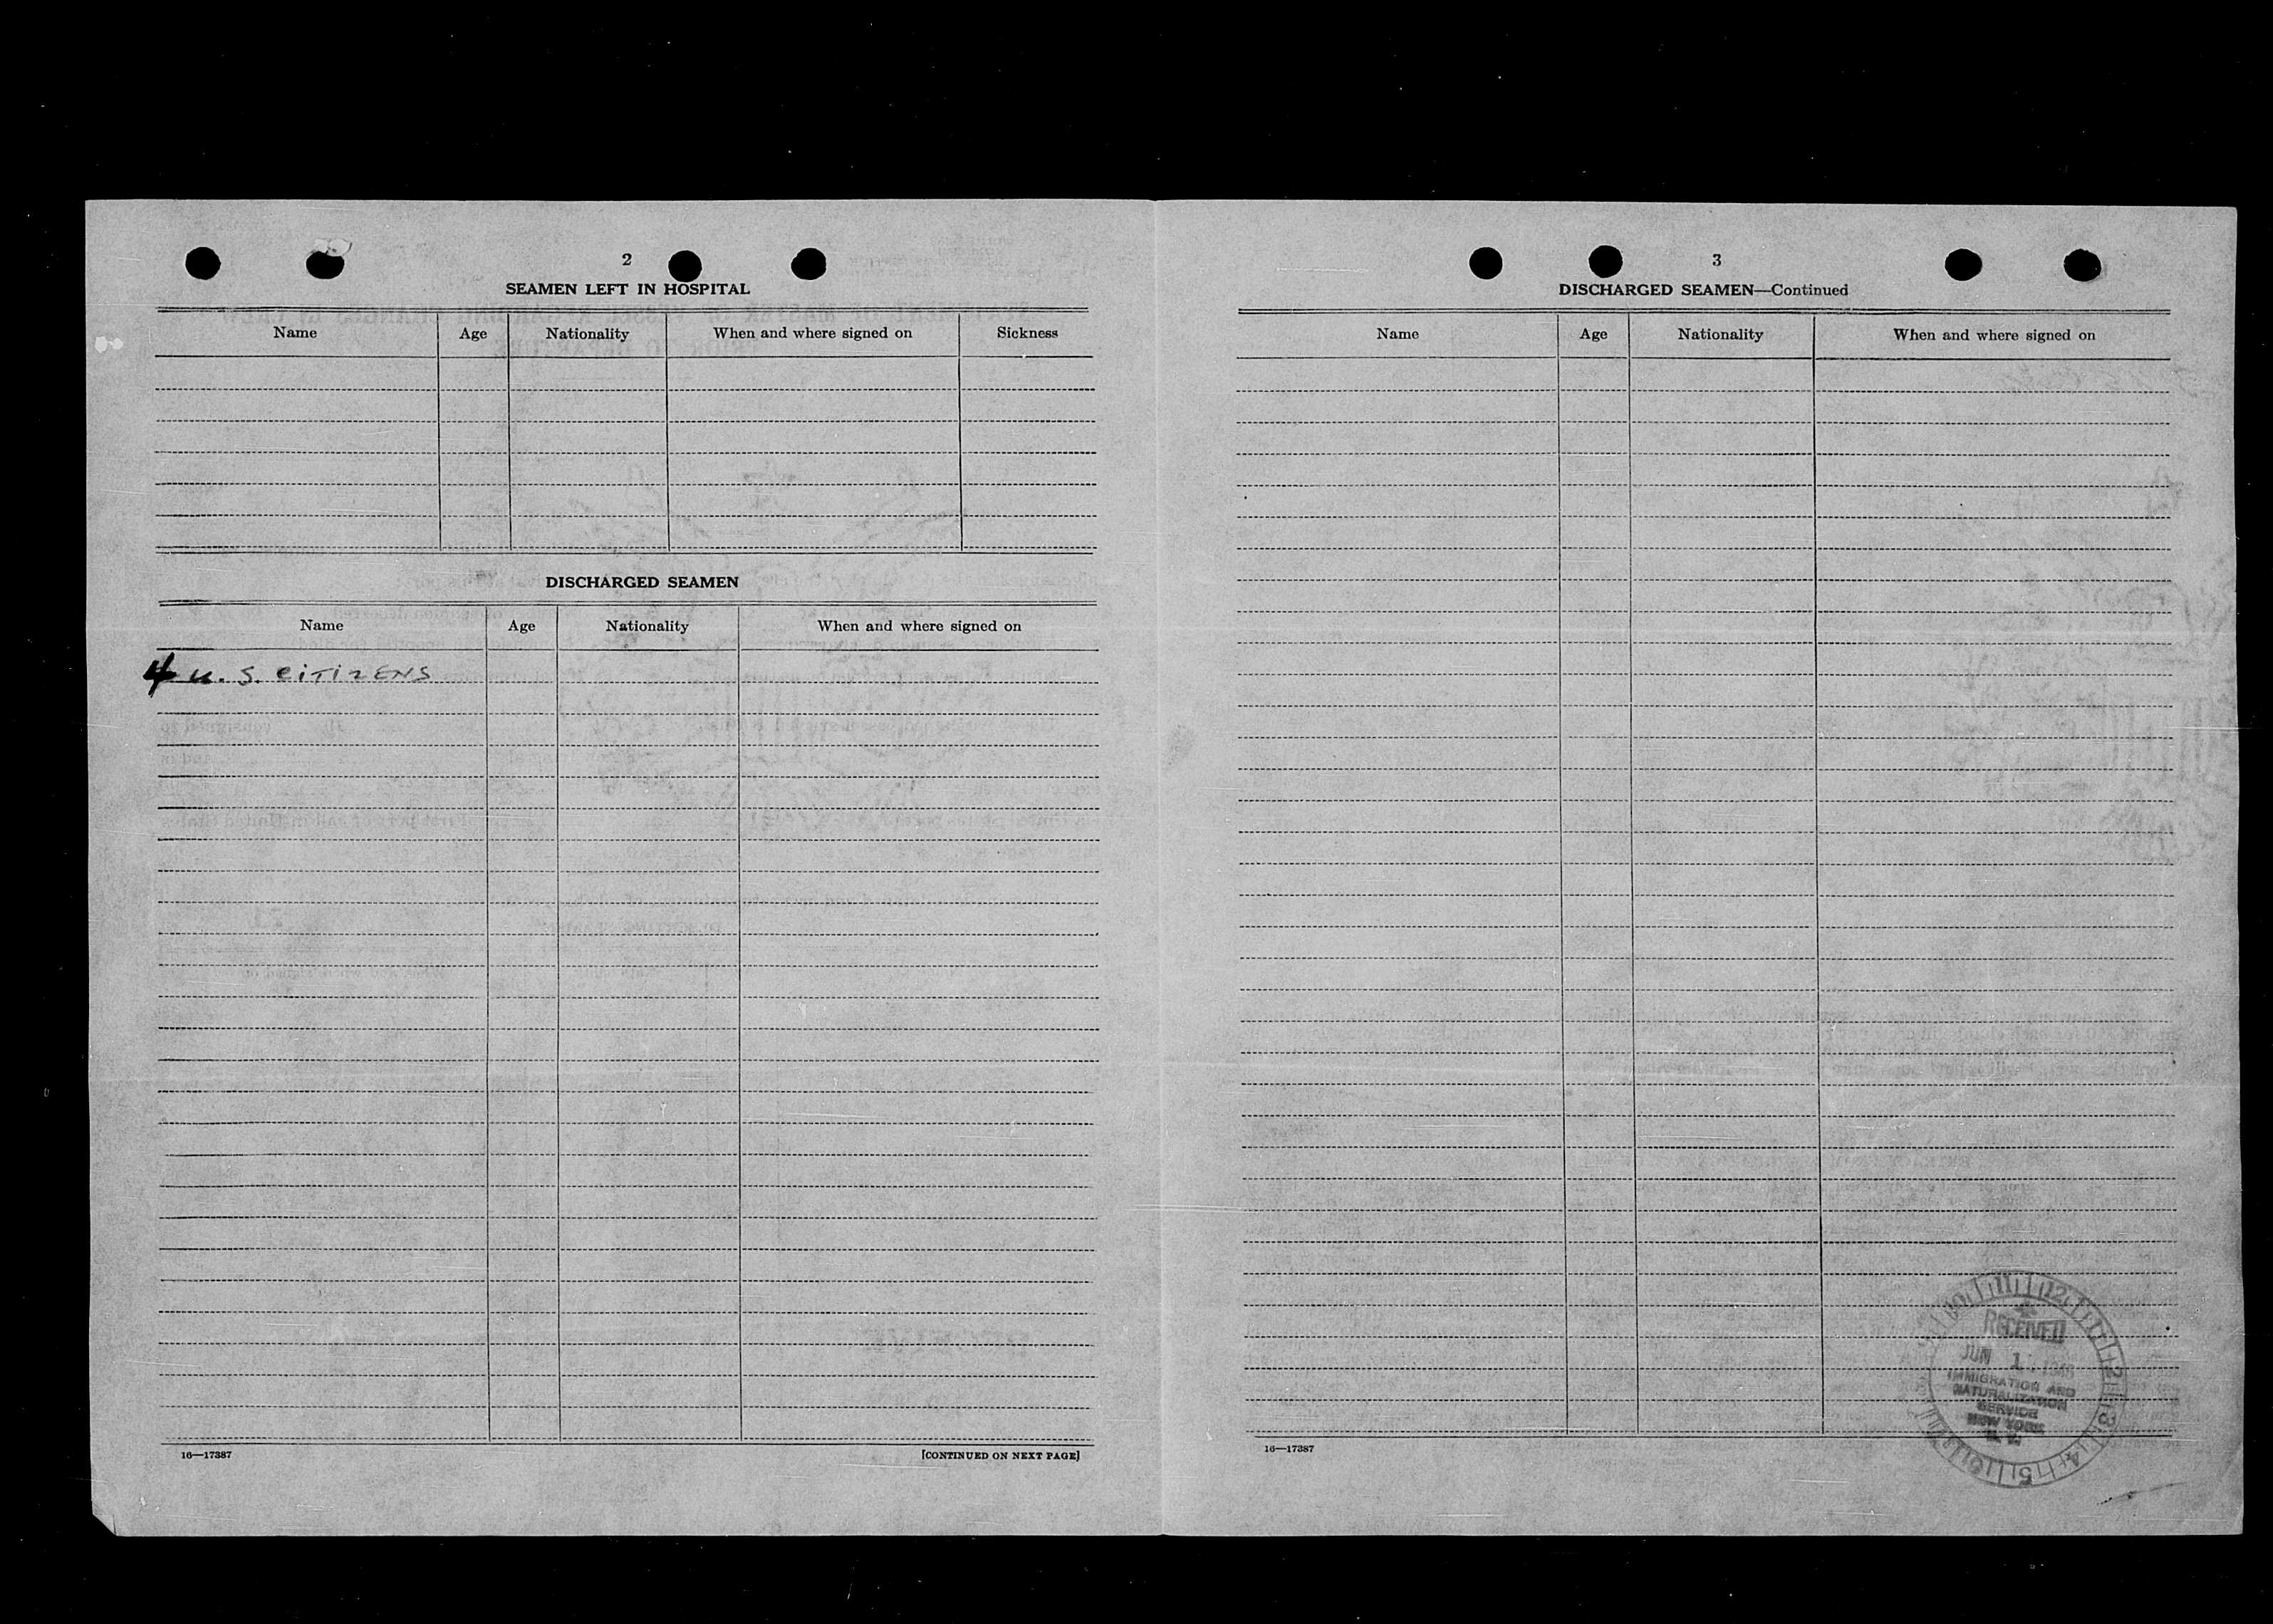 2
SEAMEN LEFT IN HOSPITAL
Name Age Nationality When and where signed on Sickness
DISCHARGED SEAMEN
Name Age Nationality When and where signed on
4 U. S. CITIZENS
16—17387 [CONTINUED ON NEXT PAGE]
3
DISCHARGED SEAMEN—Continued
Name Age Nationality When and where signed on
RECEIVED
JUN 1
IMMIGRATION AND
NATURALIZATION
SERVICE
NEW YORK
N. Y.
16—17387